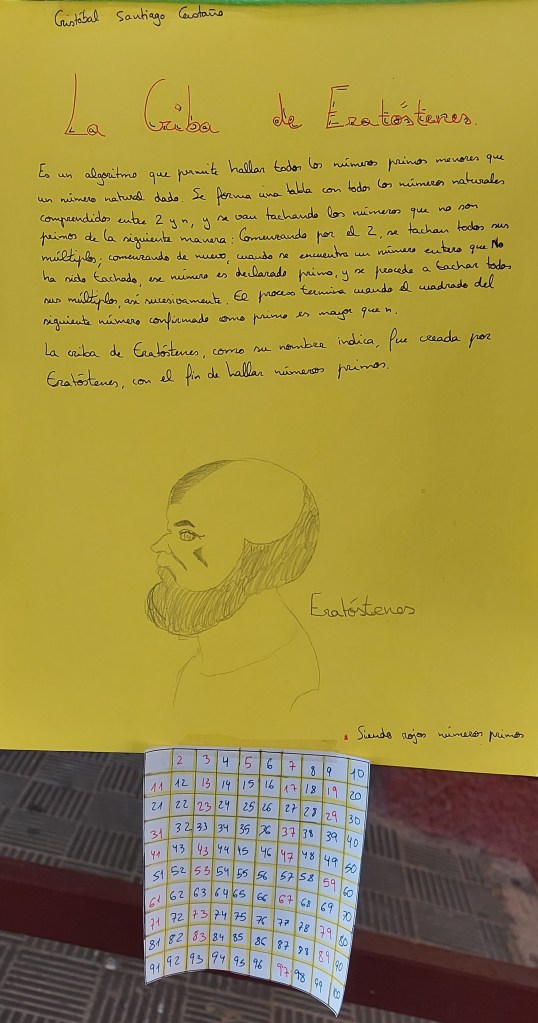 Cristóbal Santiago Castaño
La Criba de Eratóstenes.
Es un algoritmo que permite hallar todos los números primos menores que
un número natural dado. Se forma una tabla con todos los números naturales
comprendidos entre 2 y n, y se van tachando los números que no son
primos de la siguiente manera: Comenzando por el 2, se tachan todos sus
múltiplos; comenzando de nuevo, cuando se encuentra un número entero que No
ha sido tachado, ese número es declarado primo, y se procede a tachar todos
sus múltiplos, así sucesivamente. El proceso termina cuando el cuadrado del
siguiente número confirmado como primo es mayor que n.
La criba de Eratóstenes, como su nombre indica, fue creada por
Eratóstenes, con el fin de hallar números primos.
Eratóstenes
. Siendo rojos números primos
2 3 4 5 6 7 8 9 10
11 12 13 14 15 16 17 18 19 20
21 22 23 24 25 26 27 28 29 30
31 32 33 34 35 36 37 38 39 40
41 43 43 44 45 46 47 48 49 50
51 52 53 54 55 56 57 58 59 60
61 62 63 64 65 66 67 68 69 70
71 72 73 74 75 76 77 78 79 80
81 82 83 84 85 86 87 88 89 90
91 92 93 94 95 96 97 98 99 100